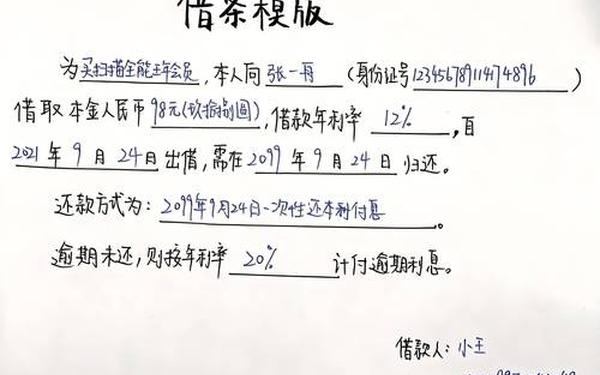 借条模版
为买扫描全能王年会员,本人向张一舟(身份证号12345678911474896)
借取本金人民币98元(玖拾捌圆),借款年利率12%,自
2021年9月24日出借,需在2099年9月24日归还。
还款方式为:2099年9月24日一次性还本利付息。
逾期未还,则按年利率20%计付逾期利息。
借款人:小王